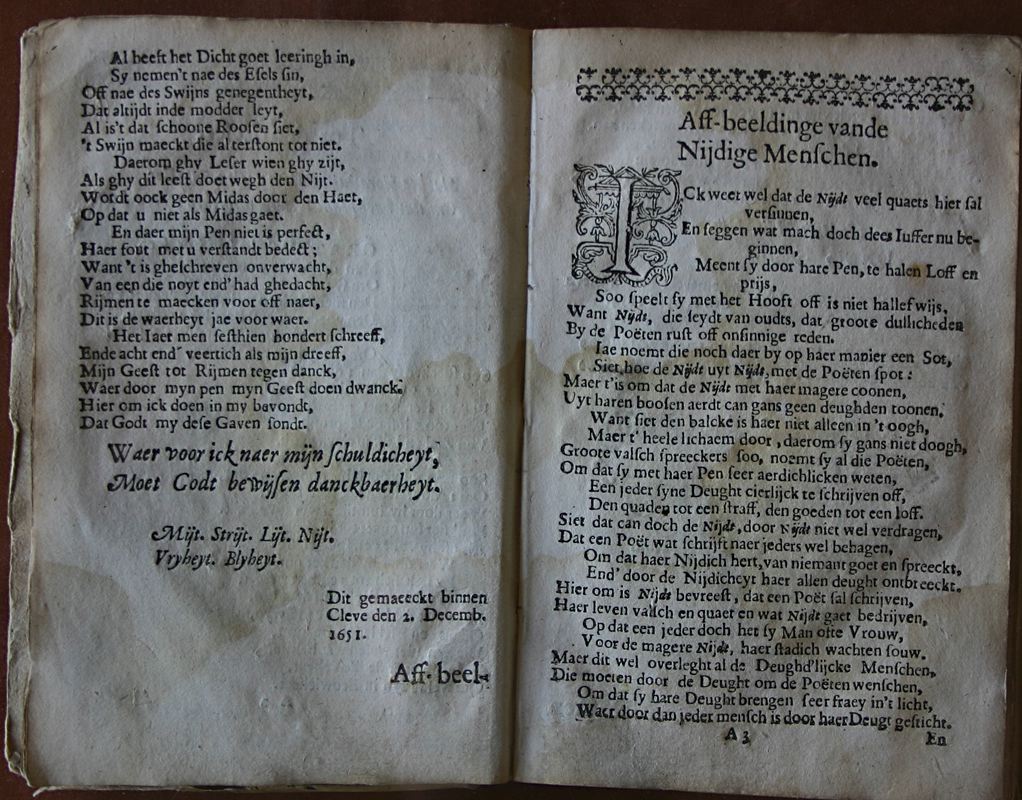 Al heeft het Dicht goet leeringh in,
Sy nemen't nae des Esels sin,
Off nae des Swijns genegentheyt,
Dat altijdt inde modder leyt,
Al is't dat schoone Roosen siet,
't Swijn maeckt die al terstont tot niet.
Daerom ghy Leser wien ghy zijt,
Als ghy dit leest doet wegh den Nijt.
Wordt oock geen Midas door den Haet,
Op dat u niet als Midas gaet.
En daer mijn Pen niet is perfect,
Haer fout met u verstandt bedect;
Want 't is gheschreven onverwacht,
Van een die noyt end' had ghedacht,
Rijmen te maecken voor off naer,
Dit is de waerheyt jae voor waer.
Het Iaer men sesthien hondert schreeff,
Ende acht end' veertich als mijn dreeff,
Mijn Geest tot Rijmen tegen danck,
Waer door myn pen myn Geest doen dwanck.
Hier om ick doen in my bavondt,
Dat Godt my dese Gaven sondt.
Waer voor ick naer mijn schuldicheyt,
Moet Godt bewijsen danckbaerheyt.
Mijt. Strijt. Lijt. Nijt.
Vryheyt. Blyheyt.
Dit gemaeckt binnen
Cleve den 2. Decemb.
1651.
Aff-beel-
Aff-beeldinge vande
Nijdige Menschen.
ICk weet wel dat de Nijdt veel quaets hier sal
versinnen,
En seggen wat mach doch dees Iuffer nu be-
ginnen,
Meent sy door hare Pen, te halen Loff en
prijs,
Soo speelt sy met het Hooft off is niet hallef wijs,
Want Nijdt, die seydt van oudts, dat groote dullicheden
By de Poëten rust off onsinnige reden.
Iae noemt die noch daer by op haer manier een Sot,
Siet hoe de Nijdt uyt Nijdt, met de Poëten spot:
Maer t'is om dat de Nijdt met haer magere coonen,
Uyt haren boosen aerdt can gans geen deughden toonen,
Want siet den balcke is haer niet alleen in 't oogh,
Maer t' heele lichaem door, daerom sy gans niet doogh,
Groote valsch spreeckers soo, noemt sy al die Poëten,
Om dat sy met haer Pen seer aerdichlicken weten,
Een jeder syne Deught cierlijck te schrijven off,
Den quaden tot een straff, den goeden tot een loff.
Siet dat can doch de Nijdt, door Nijdt niet wel verdragen,
Dat een Poët wat schrijft naer jeders wel behagen,
Om dat haer Nijdich hert, van niemant goet en spreeckt,
End' door de Nijdicheyt haer allen deught ontbreeckt.
Hier om is Nijdt bevreest, dat een Poët sal schrijven,
Haer leven valsch en quaet en wat Nijdt gaet bedrijven,
Op dat een jeder doch het sy Man ofte Vrouw,
Voor de magere Nijdt, haer stadich wachten souw.
Maer dit wel overleght al de Deughd'lijcke Menschen,
Die moeten door de Deught om de Poëten wenschen,
Om dat sy hare Deught brengen seer fraey in't licht,
Waer door dan jeder mensch is door haer Deugt gesticht.
A 3
En